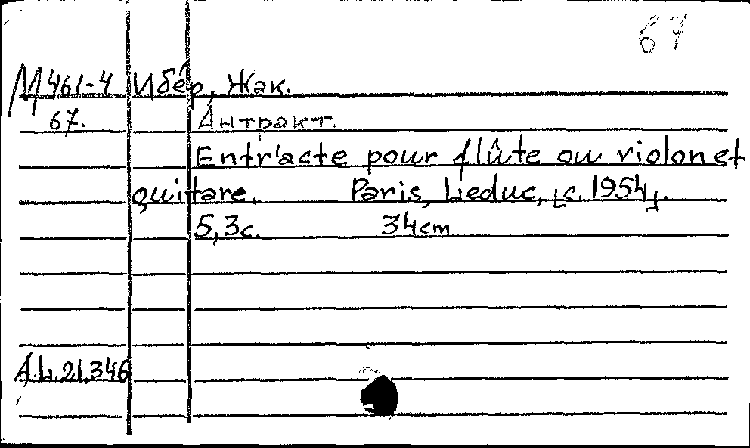 67
М461-4 Ибер, Жак.
67. Антракт.
Entr'acte pour flûte ou violon et
guitare. Paris, Leduc, [c. 1954].
5,3с. 34cm
A.L.21,346